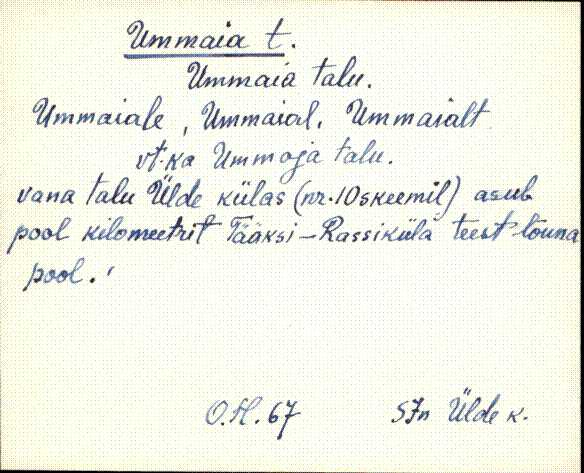 Ummaia t.
Ummaia talu.
Ummaiale, Ummaial, Ummaialt
vt. ka Ummoja talu.
vana talu Ülde külas (nr. 10 skeemil) asub
pool kilomeetrit Tääksi – Rassiküla teest lõuna
pool.
O.H. 67 SJn Ülde k.